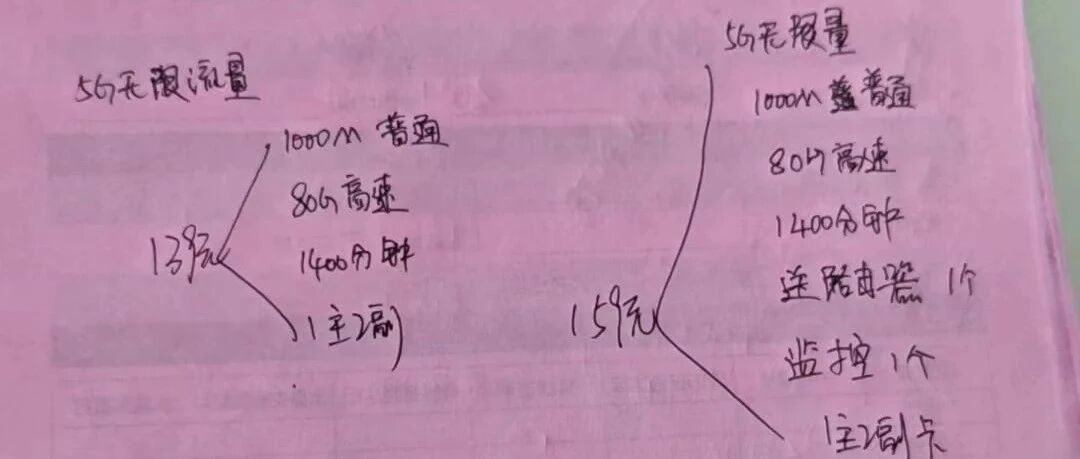 5G无限流量
1000M 普通
80G高速
139元
1400分钟
1主2副
5G无限量
1000M 普通
80G高速
1400分钟
送路由器 1个
159元
监控 1个
1主2副卡